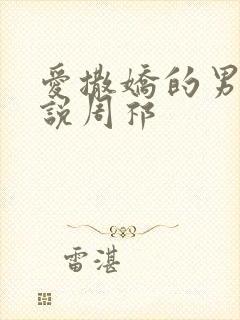 愛撒嬌的男
說周祁
雷湛